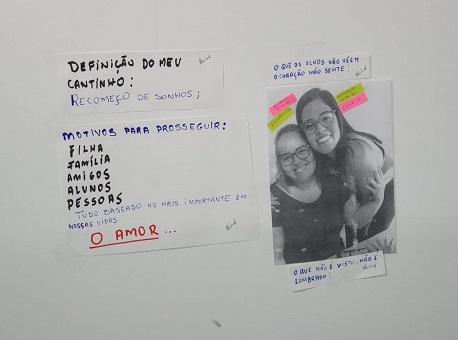 DEFINIÇÃO DO MEU
CANTINHO:
RECOMEÇO DE SONHOS;
MOTIVOS PARA PROSSEGUIR:
FILHA
FAMÍLIA
AMIGOS
ALUNOS
PESSOAS
TUDO BASEADO NO MAIS IMPORTANTE EM
NOSSAS VIDAS
O AMOR...
O QUE OS OLHOS NÃO VÊEM
O CORAÇÃO NÃO SENTE!
O QUE NÃO É VISTO, NÃO É
LEMBRADO!